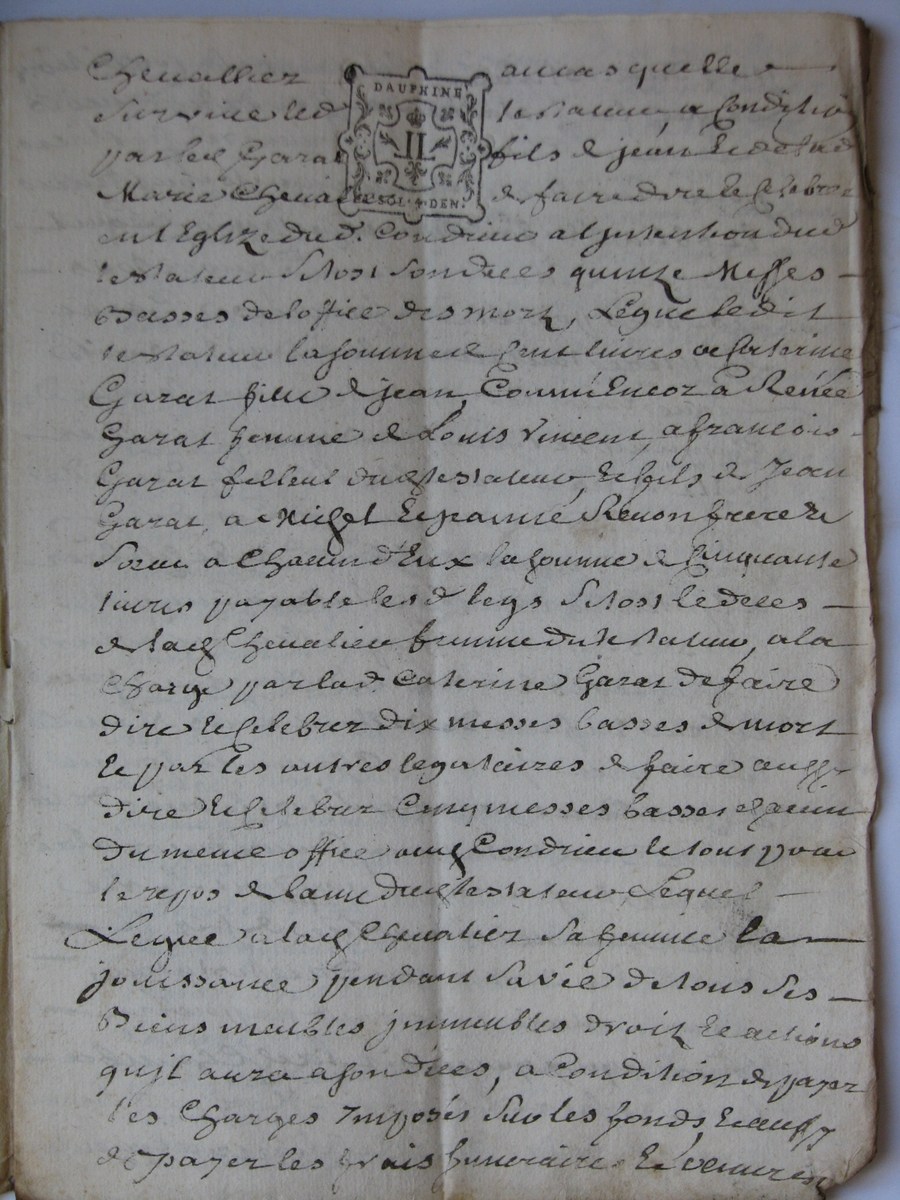 Chevallier au cas quelle
DAUPHINE
survive led testateur a Condition
II
par led Garat fils de jean et de lad
Marie Chevalier de faire dire et celebrer
SOL. 4 DEN.
en l Eglize dud. Condrieu a l jntention dud
testateur sitost son deces quinze Messes
basses de loffice des mortz, Legue ledit
testateur la somme de Cent livres a Caterine
Garat fille de jean, Comm Encor a Renée
Garat femme de Louis Vincent, a francois
Garat filleul dud testateur, et fils de Jean
Garat, a Michel et Renon frere et
Soeur a Chacun d'Eux la somme de Cinquante
livres payable lesd legs sitost le deces
de lad Chevalier femme du testateur, a la
Charge par lad. Caterine Garat de faire
dire et Celebrer dix messes basses de mort
et par les autres legataires de faire aussy
dire et Celebrer Cinq messes basses chacun
du meme office aud Condrieu le tout pour
le repos de lame dud testateur, Lequel
Legue a lad Chevalier sa femme la
jouissance pendant sa vie de tous ses
Biens meubles jmmeubles droitz et actions
qu'jl aura a son deces, a Condition de payer
les Charges Imposés sur les fonds, et aussy
de payer les frais funeraire